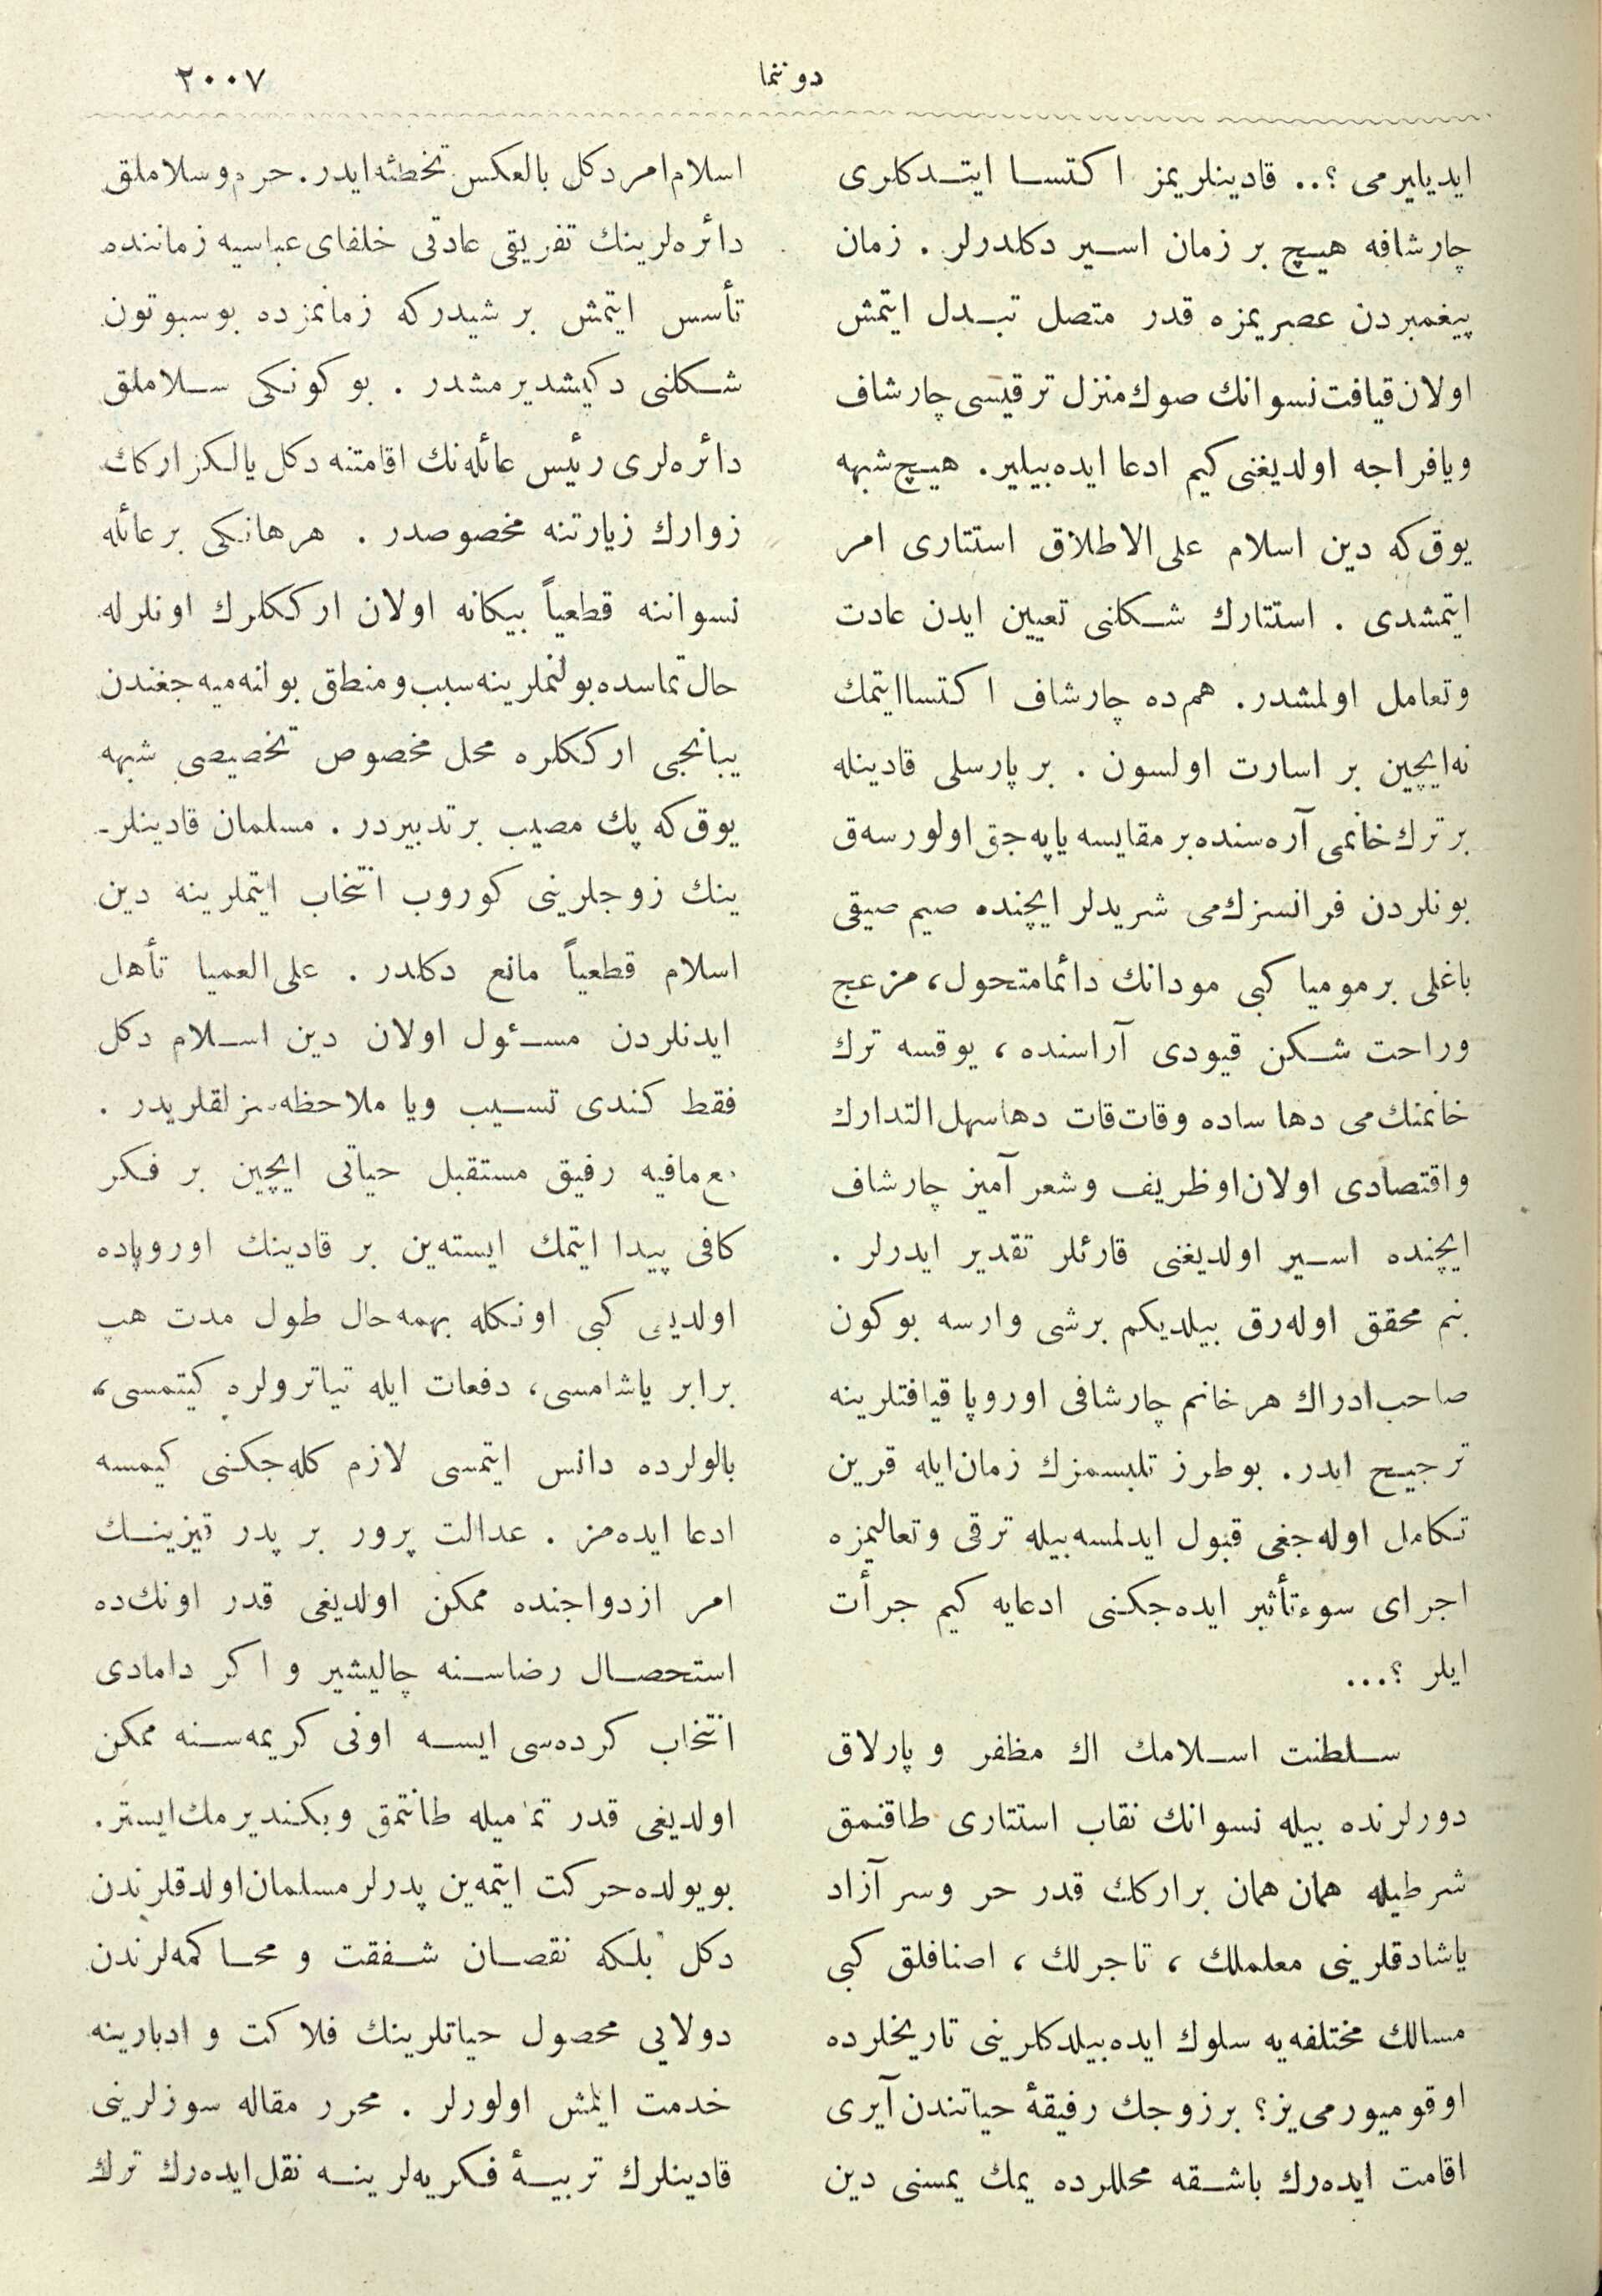 دوننما
٢٠٠٧
ايديليرمى ؟.. قادينلريمز اكتسا ايتدكلرى
چارشافه هيچ بر زمان اسير دكلدرلر . زمان
پيغمبردن عصريمزه قدر متصل تبدل ايتمش
اولان قيافت نسوانك صوك منزل ترقيسى چارشاف
ويا فراجه اولديغنى كيم ادعا ايده بيلير. هيچ شبهه
يوق كه دين اسلام على الاطلاق استتارى امر
ايتمشدى . استتارك شكلنى تعيين ايدن عادت
وتعامل اولمشدر. هم ده چارشاف اكتسا ايتمك
نه ايچين بر اسارت اولسون . بر پارسلى قادينله
بر ترك خانمى آره سنده بر مقايسه ياپه جق اولورسه ق
بونلردن فرانسزك مى شريدلر ايچنده صيم صيقى
باغلى بر موميا كبى مودانك دائما متحول، مزعج
وراحت شكن قيودى آراسنده ، يوقسه ترك
خانمنك مى دها ساده وقات قات دها سهل التدارك
واقتصادى اولان او ظريف وشعر آميز چارشاف
ايچنده اسير اولديغنى قارئلر تقدير ايدرلر .
بنم محقق اوله رق بيلديكم برشى وارسه بوكون
صاحب ادراك هر خانم چارشافى اوروپا قيافتلرينه
ترجيح ايدر. بو طرز تلبسمزك زمان ايله قرين
تكامل اوله جغى قبول ايدلمسه بيله ترقى وتعاليمزه
اجراى سوء تأثير ايده جكنى ادعايه كيم جرأت
ايلر ؟...
سلطنت اسلامك اك مظفر و پارلاق
دورلرنده بيله نسوانك نقاب استتارى طاقنمق
شرطيله همان همان بر اركك قدر حر وسر آزاد
ياشادقلرينى معلملك ، تاجرلك ، اصنافلق كبى
مسالك مختلفه يه سلوك ايده بيلدكلرينى تاريخلرده
اوقوميورمى يز؟ بر زوجك رفيقۀ حياتندن آيرى
اقامت ايده رك باشقه محللرده يمك يمسنى دين
اسلام امر دكل بالعكس تخطئه ايدر. حرم وسلاملق
دائره لرينك تفريقى عادتى خلفاى عباسيه زماننده
تأسس ايتمش بر شيدركه زمانمزده بوسبوتون
شكلنى دكيشديرمشدر . بوكونكى سلاملق
دائره لرى رئيس عائله نك اقامتنه دكل يالكز اركك
زوارك زيارتنه مخصوصدر . هرهانكى بر عائله
نسواننه قطعياً بيكانه اولان ارككلرك اونلرله
حال تماسده بولنملرينه سبب ومنطق بولنه ميه جغندن
يبانجى ارككلره محل مخصوص تخصيصى شبهه
يوق كه پك مصيب بر تدبيردر . مسلمان قادينلر-
ينك زوجلرينى كوروب انتخاب ايتملرينه دين
اسلام قطعياً مانع دكلدر . على العميا تأهل
ايدنلردن مسئول اولان دين اسلام دكل
فقط كندى تسيب ويا ملاحظه سزلقلريدر .
مع مافيه رفيق مستقبل حياتى ايچين بر فكر
كافى پيدا ايتمك ايسته ين بر قادينك اوروپاده
اولديغى كبى اونكله بهمه حال طول مدت هپ
برابر ياشامسى، دفعات ايله تياترولره كيتمسى،
بالولرده دانس ايتمسى لازم كله جكنى كيمسه
ادعا ايده مز . عدالت پرور بر پدر قيزينك
امر ازدواجنده ممكن اولديغى قدر اونك ده
استحصال رضاسنه چاليشير و اكر دامادى
انتخاب كرده سى ايسه اونى كريمه سنه ممكن
اولديغى قدر تماميله طانتمق وبكنديرمك ايستر.
بو يولده حركت ايتمه ين پدرلر مسلمان اولدقلرندن
دكل بلكه نقصان شفقت و محاكمه لرندن
دولايى محصول حياتلرينك فلاكت و ادبارينه
خدمت ايتمش اولورلر . محرر مقاله سوزلرينى
قادينلرك تربيۀ فكريه لرينه نقل ايده رك ترك